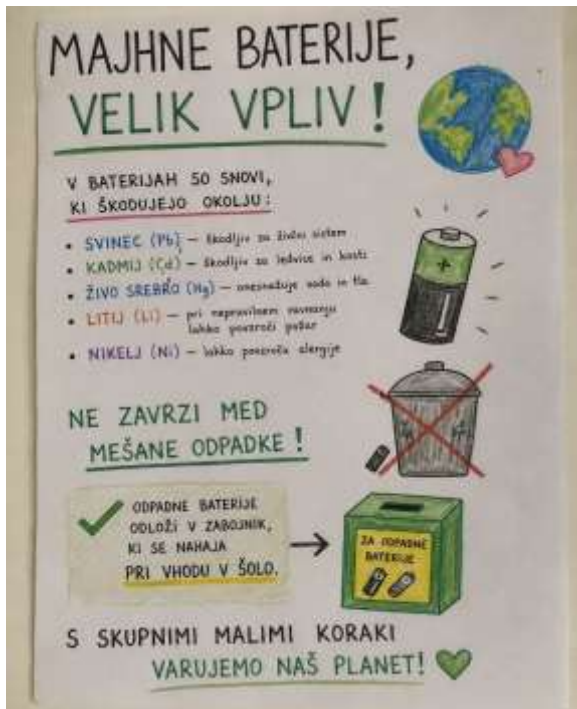 MAJHNE BATERIJE,
VELIK VPLIV!
V BATERIJAH SO SNOVI,
KI ŠKODUJEJO OKOLJU:
• SVINEC (Pb) – škodljiv za živčni sistem
• KADMIJ (Cd) – škodljiv za ledvice in kosti
• ŽIVO SREBRO (Hg) – onesnažuje vodo in tla
• LITIJ (Li) – pri nepravilnem ravnanju
lahko povzroči požar
• NIKELJ (Ni) – lahko povzroča alergije
NE ZAVRZI MED
MEŠANE ODPADKE!
ODPADNE BATERIJE
ODLOŽI V ZABOJNIK,
KI SE NAHAJA
PRI VHODU V ŠOLO.
ZA ODPADNE
BATERIJE
S SKUPNIMI MALIMI KORAKI
VARUJEMO NAŠ PLANET!